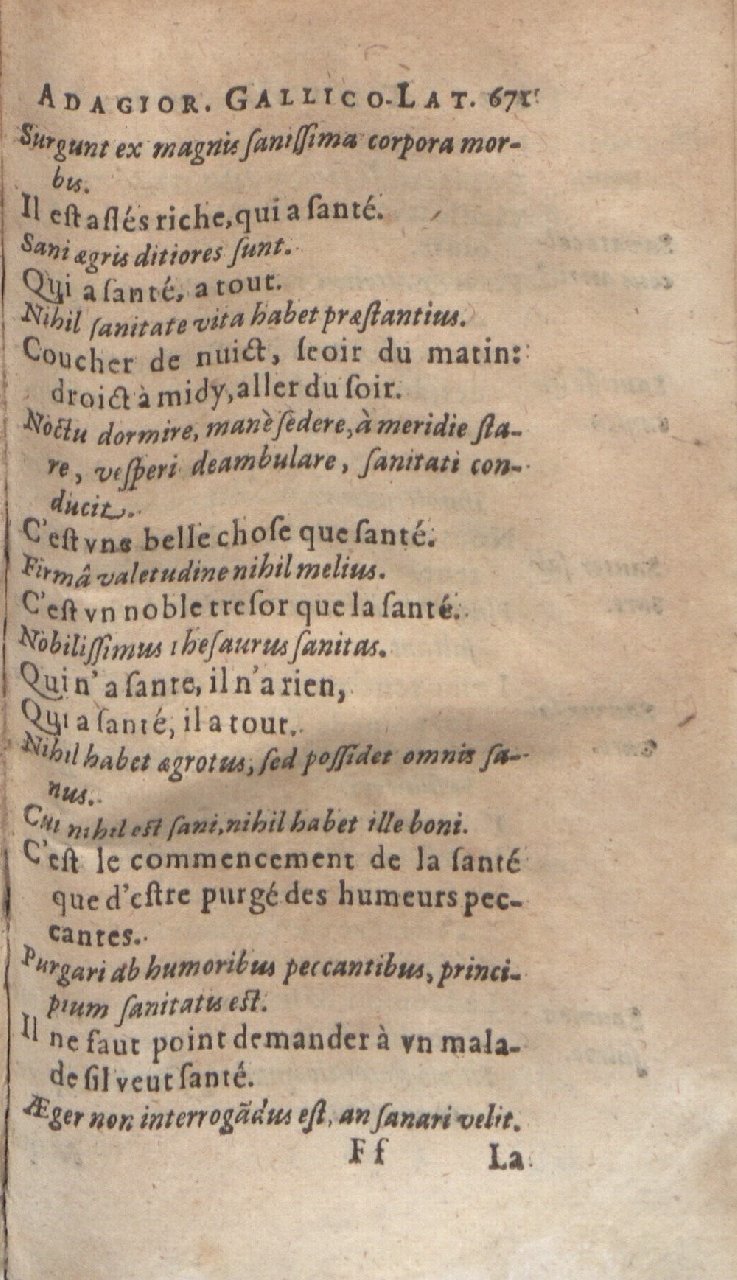 ADAGIOR. GALLICO-LAT. 671
Surgunt ex magnis ſanıſſima corpora mor-
bis.
Il eſt aſſés riche, qui a ſanté.
Sani ægris ditiores ſunt.
Qui a ſanté, a tout.
Nihil ſanitate vita habet præſtantius.
Coucher de nuict, ſeoir du matin:
droict à midy, aller du ſoir.
Noctu dormire, manè ſedere, à meridie ſta-
re, veſperi deambulare, ſanitati con-
ducit.
C'eſt vne belle choſe que ſanté.
Firmâ valetudine nihil melius.
C'eſt vn noble treſor que la ſanté.
Nobiliſſimus theſaurus ſanitas.
Qui n'a ſante, il n'a rien,
Qui a ſanté, il a tout.
Nihil habet ægrotus, ſed poſſidet omnis ſa-
nus.
Cui nihil eſt ſani, nihil habet ille boni.
C'eſt le commencement de la ſanté
que d'eſtre purgé des humeurs pec-
cantes.
Purgari ab humoribus peccantibus, princi-
pium ſanitatis eſt.
Il ne faut point demander à vn mala-
de ſil veut ſanté.
Æger non interrogãdus eſt, an ſanari velit.
Ff La